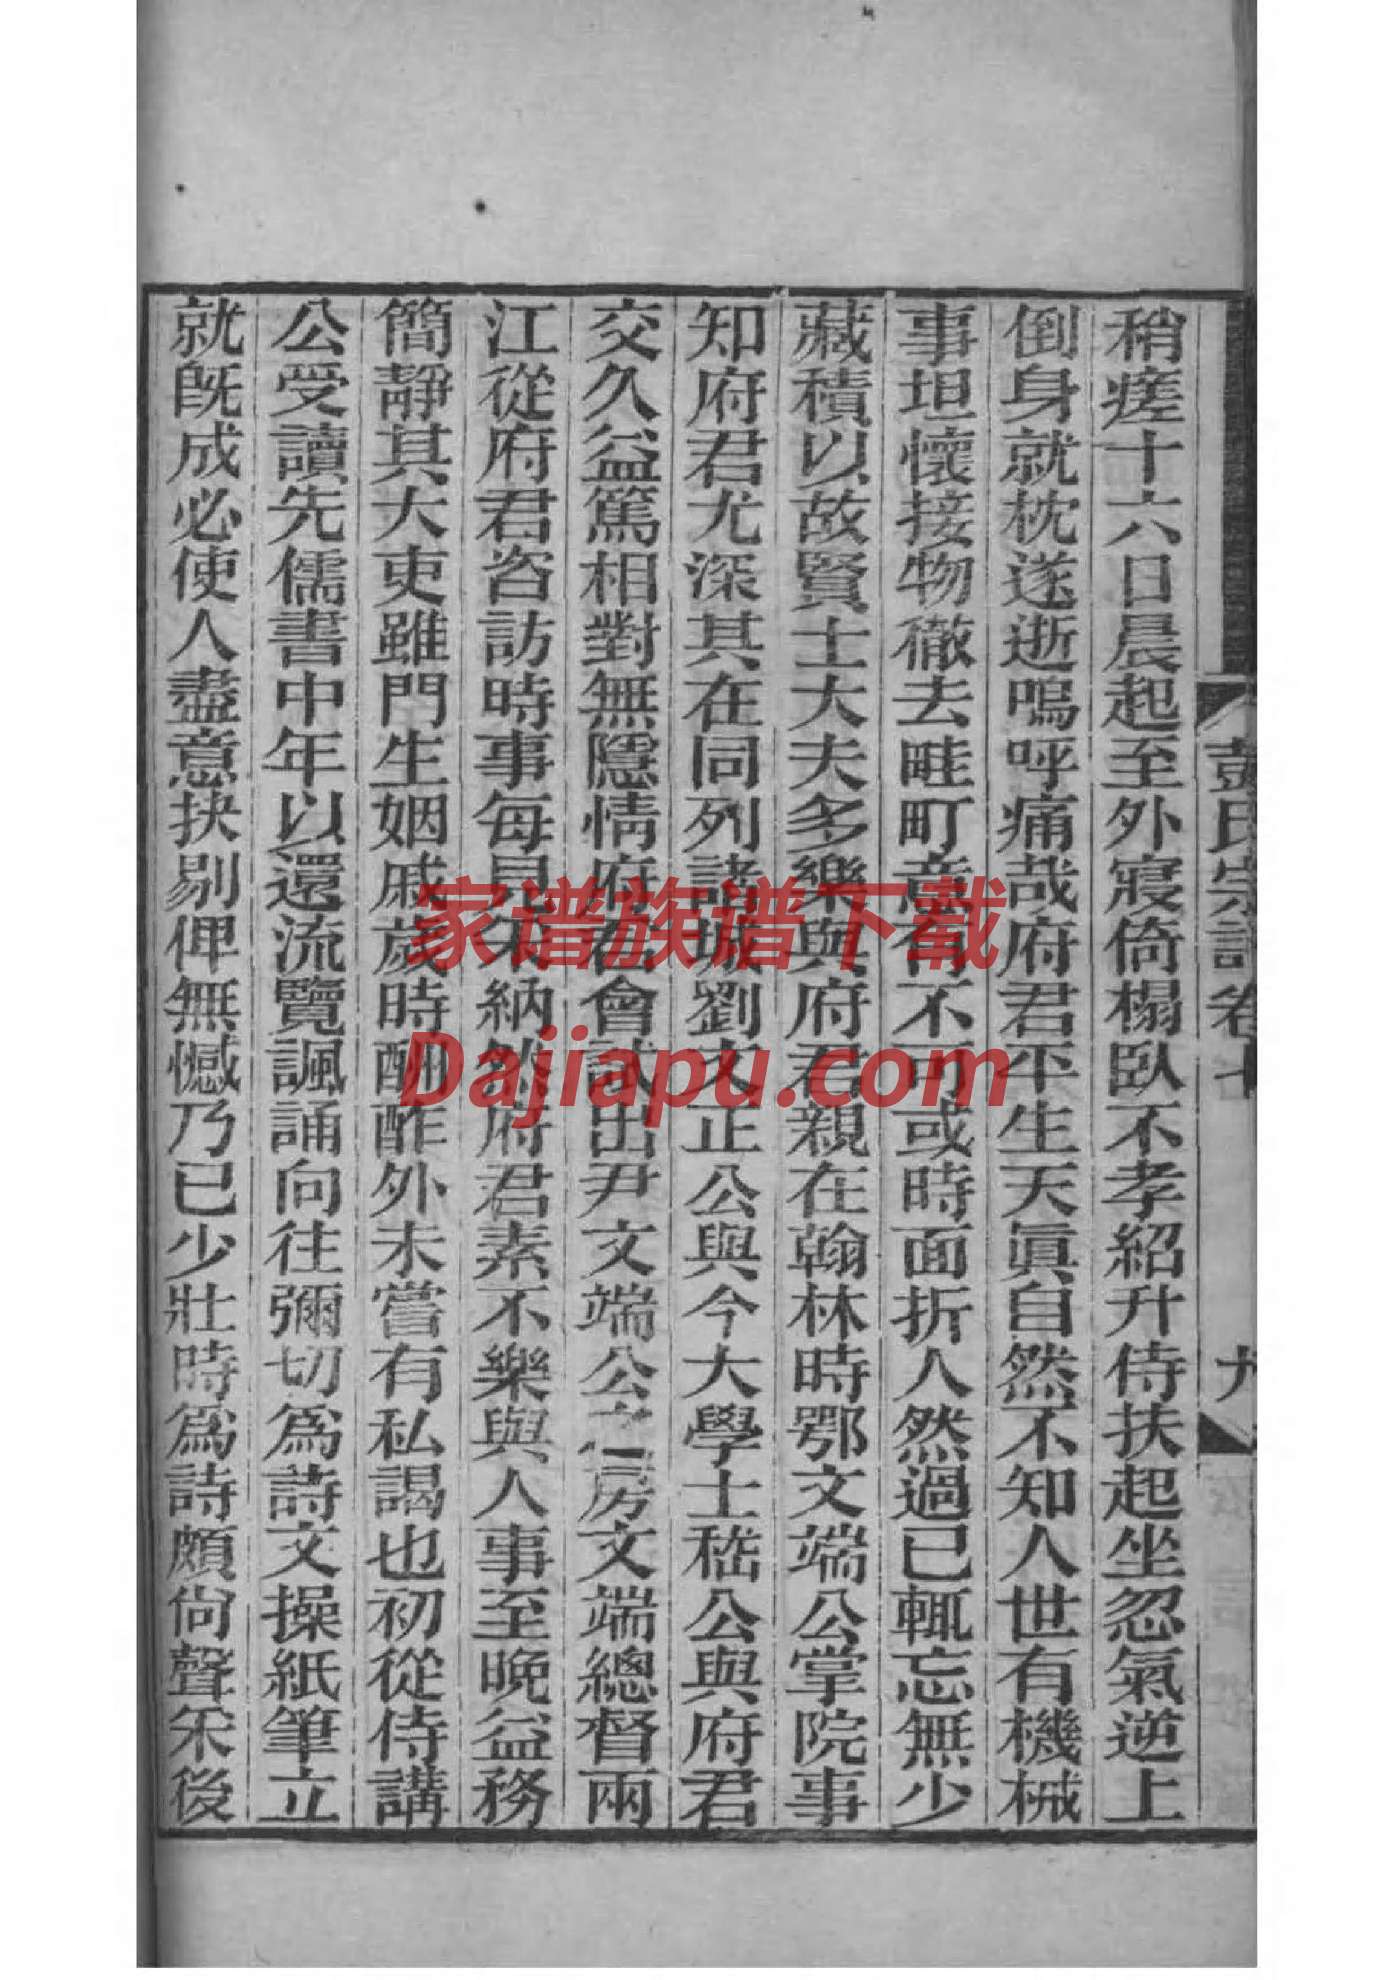 稍瘥十六日晨起至外寢倚榻臥不孝紹升侍扶起坐忽氣逆上
倒身就枕遂逝嗚呼痛哉府君平生天眞自然不知人世有機械
事坦懷接物徹去畦町意有不可或時面折人然過已輒忘無少
藏積以故賢士大夫多樂與府君親在翰林時鄂文端公掌院事
知府君尤深其在同列諸城劉文正公與今大學士嵇公與府君
交久益篤相對無隱情府君會試出尹文端公之房文端總督兩
江從府君咨訪時事每見采納然府君素不樂與人事至晚益務
簡靜其大吏雖門生姻戚歲時酬酢外未嘗有私謁也初從侍講
公受讀先儒書中年以還流覽諷誦向往彌切爲詩文操紙筆立
就旣成必使人盡意抉剔俾無憾乃已少壯時爲詩頗尙聲采後
彭氏宗譜 卷七 九
家谱族谱下载
Dajiapu.com